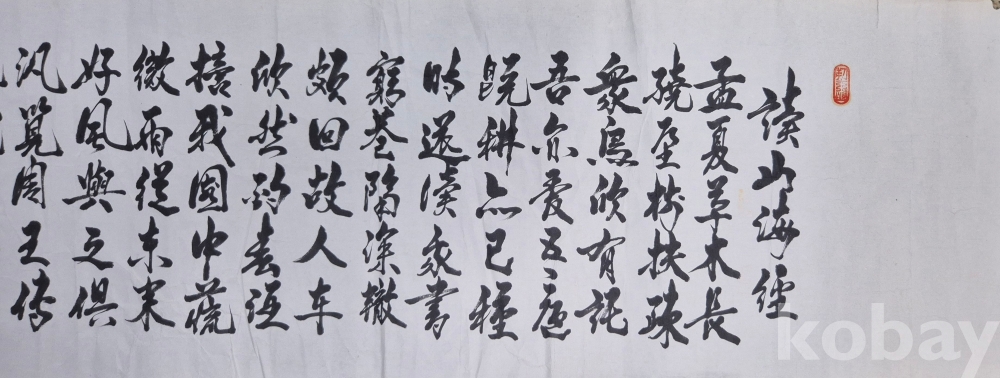 讀山海經
孟夏草木長
繞屋樹扶疎
衆鳥欣有託
吾亦愛吾廬
既耕亦已種
時還讀我書
窮巷隔深轍
頗回故人车
欣然酌春酒
摘我園中蔬
微雨從東来
好風與之俱
汎覽周王傳
kobay